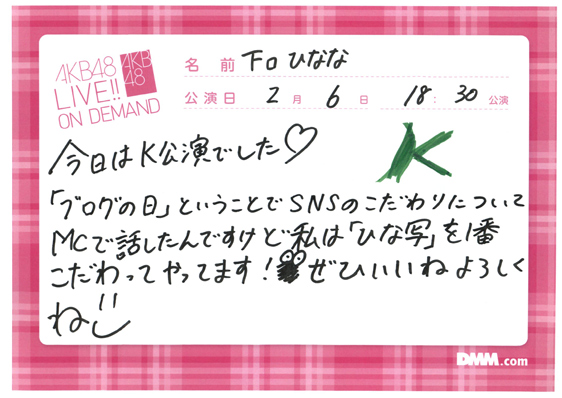 AKB48
LIVE!!
ON DEMAND
AKB
48
名前 下口ひなな
公演日 2月6日 18:30公演
今日はK公演でした♡
K
「ブログの日」ということでSNSのこだわりについて
MCで話したんですけど私は「ひな写」を1番
こだわってやってます!ぜひいいねよろしく
ね
DMM.com